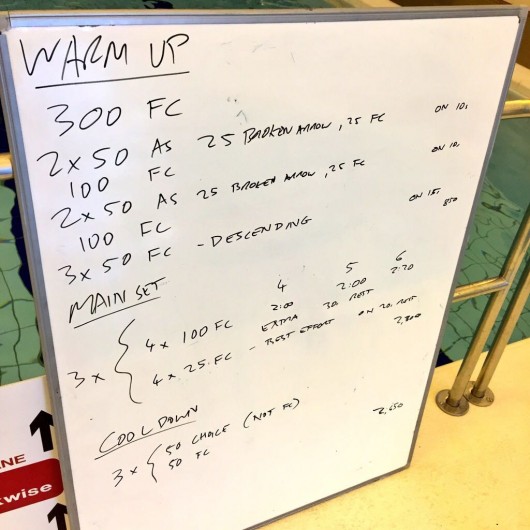 WARM UP
300 FC
2 x 50 AS 25 BROKEN ARROW, 25 FC ON 10s
100 FC
2 x 50 AS 25 BROKEN ARROW, 25 FC ON 10s
100 FC
3 x 50 FC - DESCENDING ON 15s
850
MAIN SET
4 5 6
3 x { 4 x 100 FC 2:00 2:00 2:20
EXTRA 30 REST
4 x 25 FC - BEST EFFORT ON 20 REST
COOL DOWN
3 x { 50 CHOICE (NOT FC) 2,650
50 FC
NE
kwise